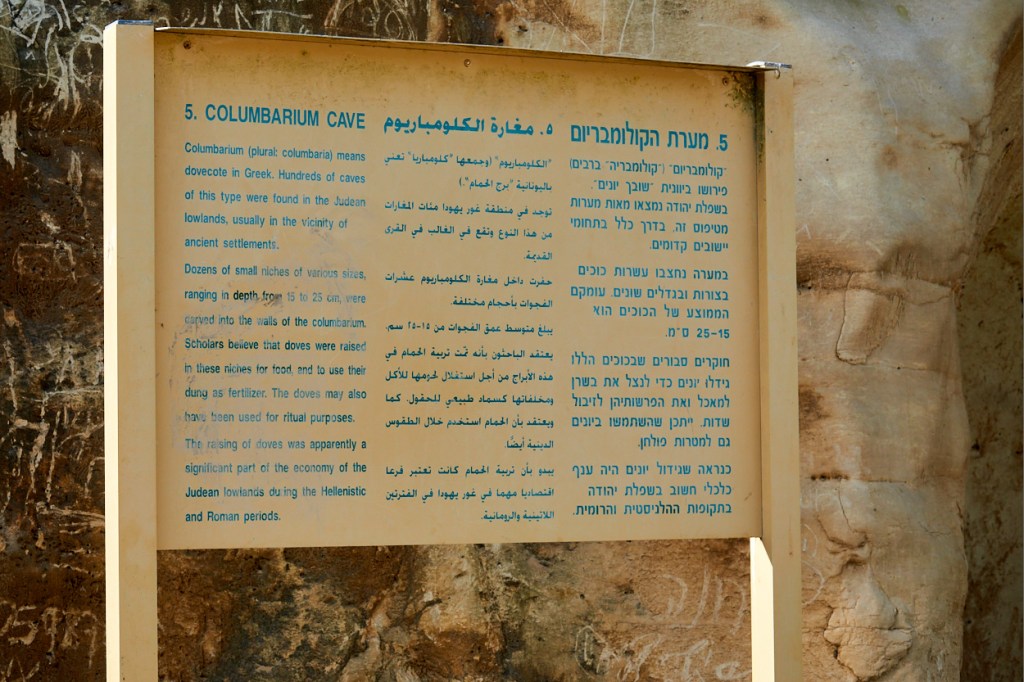 5. COLUMBARIUM CAVE
Columbarium (plural: columbaria) means
dovecote in Greek. Hundreds of caves
of this type were found in the Judean
lowlands, usually in the vicinity of
ancient settlements.
Dozens of small niches of various sizes,
ranging in depth from 15 to 25 cm, were
carved into the walls of the columbarium.
Scholars believe that doves were raised
in these niches for food, and to use their
dung as fertilizer. The doves may also
have been used for ritual purposes.
The raising of doves was apparently a
significant part of the economy of the
Judean lowlands during the Hellenistic
and Roman periods.
٥. مغارة الكلومباريوم
"الكلومباريوم" (وجمعها "كلومباريا" تعني
باليونانية "برج الحمام".)
توجد في منطقة غور يهودا مئات المغارات
من هذا النوع وتقع في الغالب في القرى
القديمة.
حفرت داخل مغارة الكلومباريوم عشرات
الفجوات بأحجام مختلفة.
يبلغ متوسط عمق الفجوات من ١٥-٢٥ سم.
يعتقد الباحثون بأنه تمّت تربية الحمام في
هذه الأبراج من أجل استغلال لحومها للأكل
ومخلفاتها كسماد طبيعي للحقول. كما
ويعتقد بأن الحمام استخدم خلال الطقوس
الدينية أيضًا.
يبدو بأن تربية الحمام كانت تعتبر فرعا
اقتصاديا مهما في غور يهودا في الفترتين
اللاتينية والرومانية.
5. מערת הקולומבריום
"קולומבריום" ("קולומבריה" ברבים)
פירושו ביוונית "שובך יונים".
בשפלת יהודה נמצאו מאות מערות
מטיפוס זה, בדרך כלל בתחומי
יישובים קדומים.
במערה נחצבו עשרות כוכים
בצורות ובגדלים שונים. עומקם
הממוצע של הכוכים הוא
25-15 ס"מ.
חוקרים סבורים שבכוכים הללו
גידלו יונים כדי לנצל את בשרן
למאכל ואת הפרשותיהן לזיבול
שדות. ייתכן שהשתמשו ביונים
גם למטרות פולחן.
כנראה שגידול יונים היה ענף
כלכלי חשוב בשפלת יהודה
בתקופות ההלניסטית והרומית.